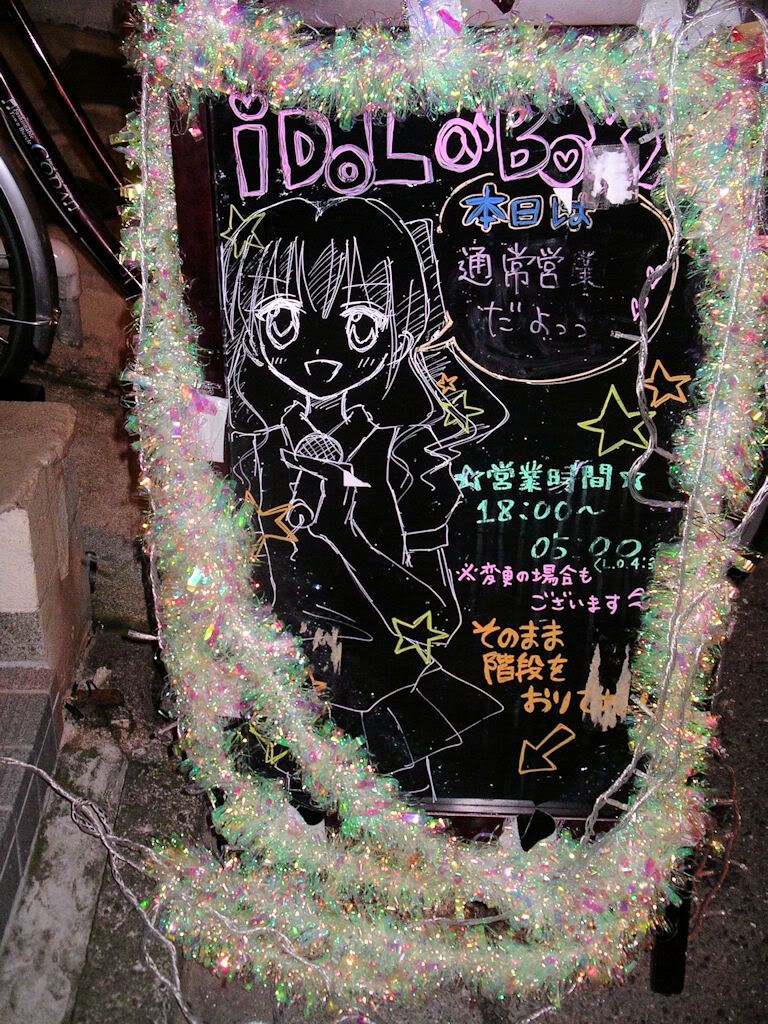 iDOL@Box
本日は
通常営業
だよっっ
☆営業時間☆
18:00〜
05:00
(L.o.4:
※変更の場合も
ございます
そのまま
階段を
おりて